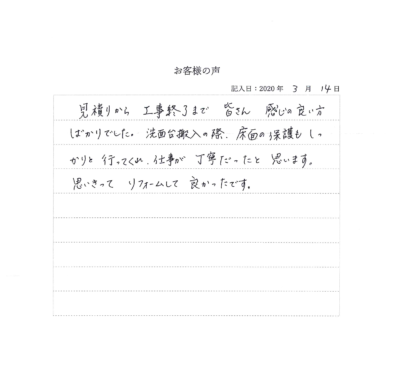 お客様の声
記入日：2020 年 3 月 14 日
見積りから 工事終了まで 皆さん 感じの良い方
ばかりでした。洗面台搬入の際、床面の保護もしっ
かりと 行ってくれ、仕事が 丁寧だったと 思います。
思いきって リフォームして 良かったです。